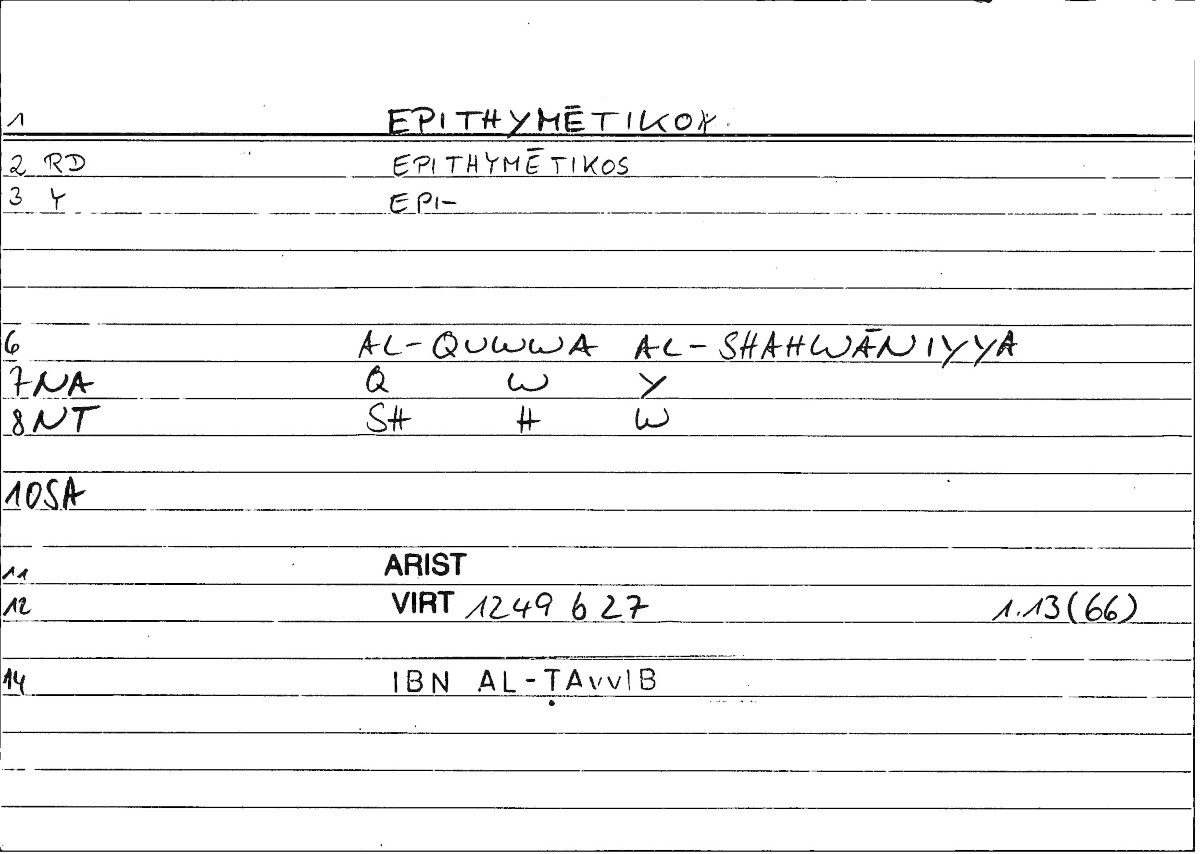 1 EPITHYMĒTIKON
2 RD EPITHYMĒTIKOS
3 Y EPI-
6 AL-QUWWA AL-SHAHWĀNIYYA
7 NA Q W Y
8 NT SH H W
10 SA
11 ARIST
12 VIRT 1249 b 27 1.13(66)
14 IBN AL-ṬAYYIB